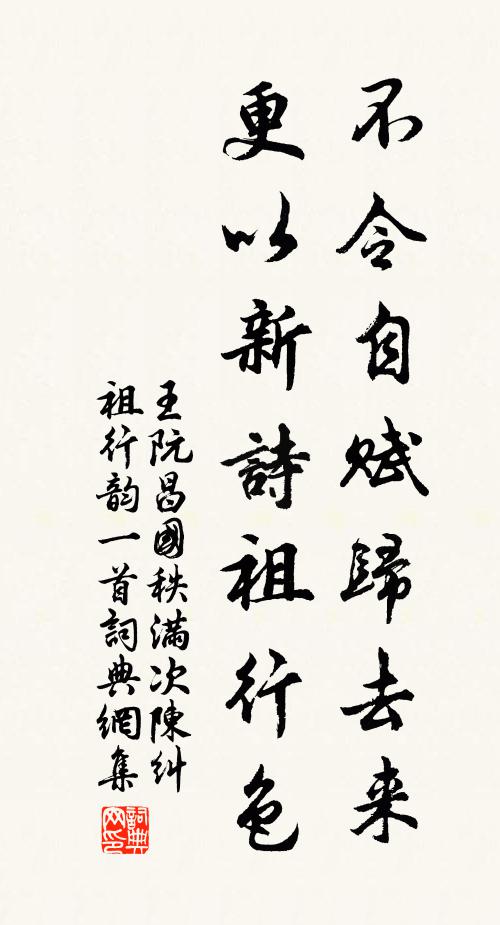 不令自賦歸去来
更以新詩祖行色
王阮昌國秩滿次陳糾
祖行韵一首詞典網集
詞典
网印